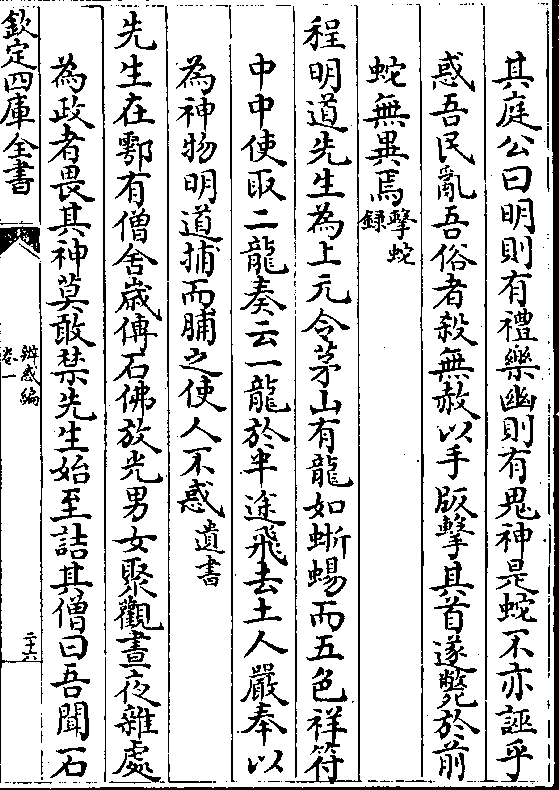 其庭公曰明則有禮樂幽則有鬼神是蛇不亦誣乎
惑吾民亂吾俗者殺無赦以手版擊其首遂斃於前
蛇無異焉擊蛇錄
程明道先生為上元令茅山有龍如蜥蜴而五色祥符
中中使取二龍奏云一龍於半途飛去土人嚴奉以
為神物明道捕而脯之使人不惑遺書
先生在鄠有僧舍歲傳石佛放光男女聚觀晝夜雜處
為政者畏其神莫敢禁先生始至詰其僧曰吾聞石
欽定四庫全書
辨惑編
卷一
二十六